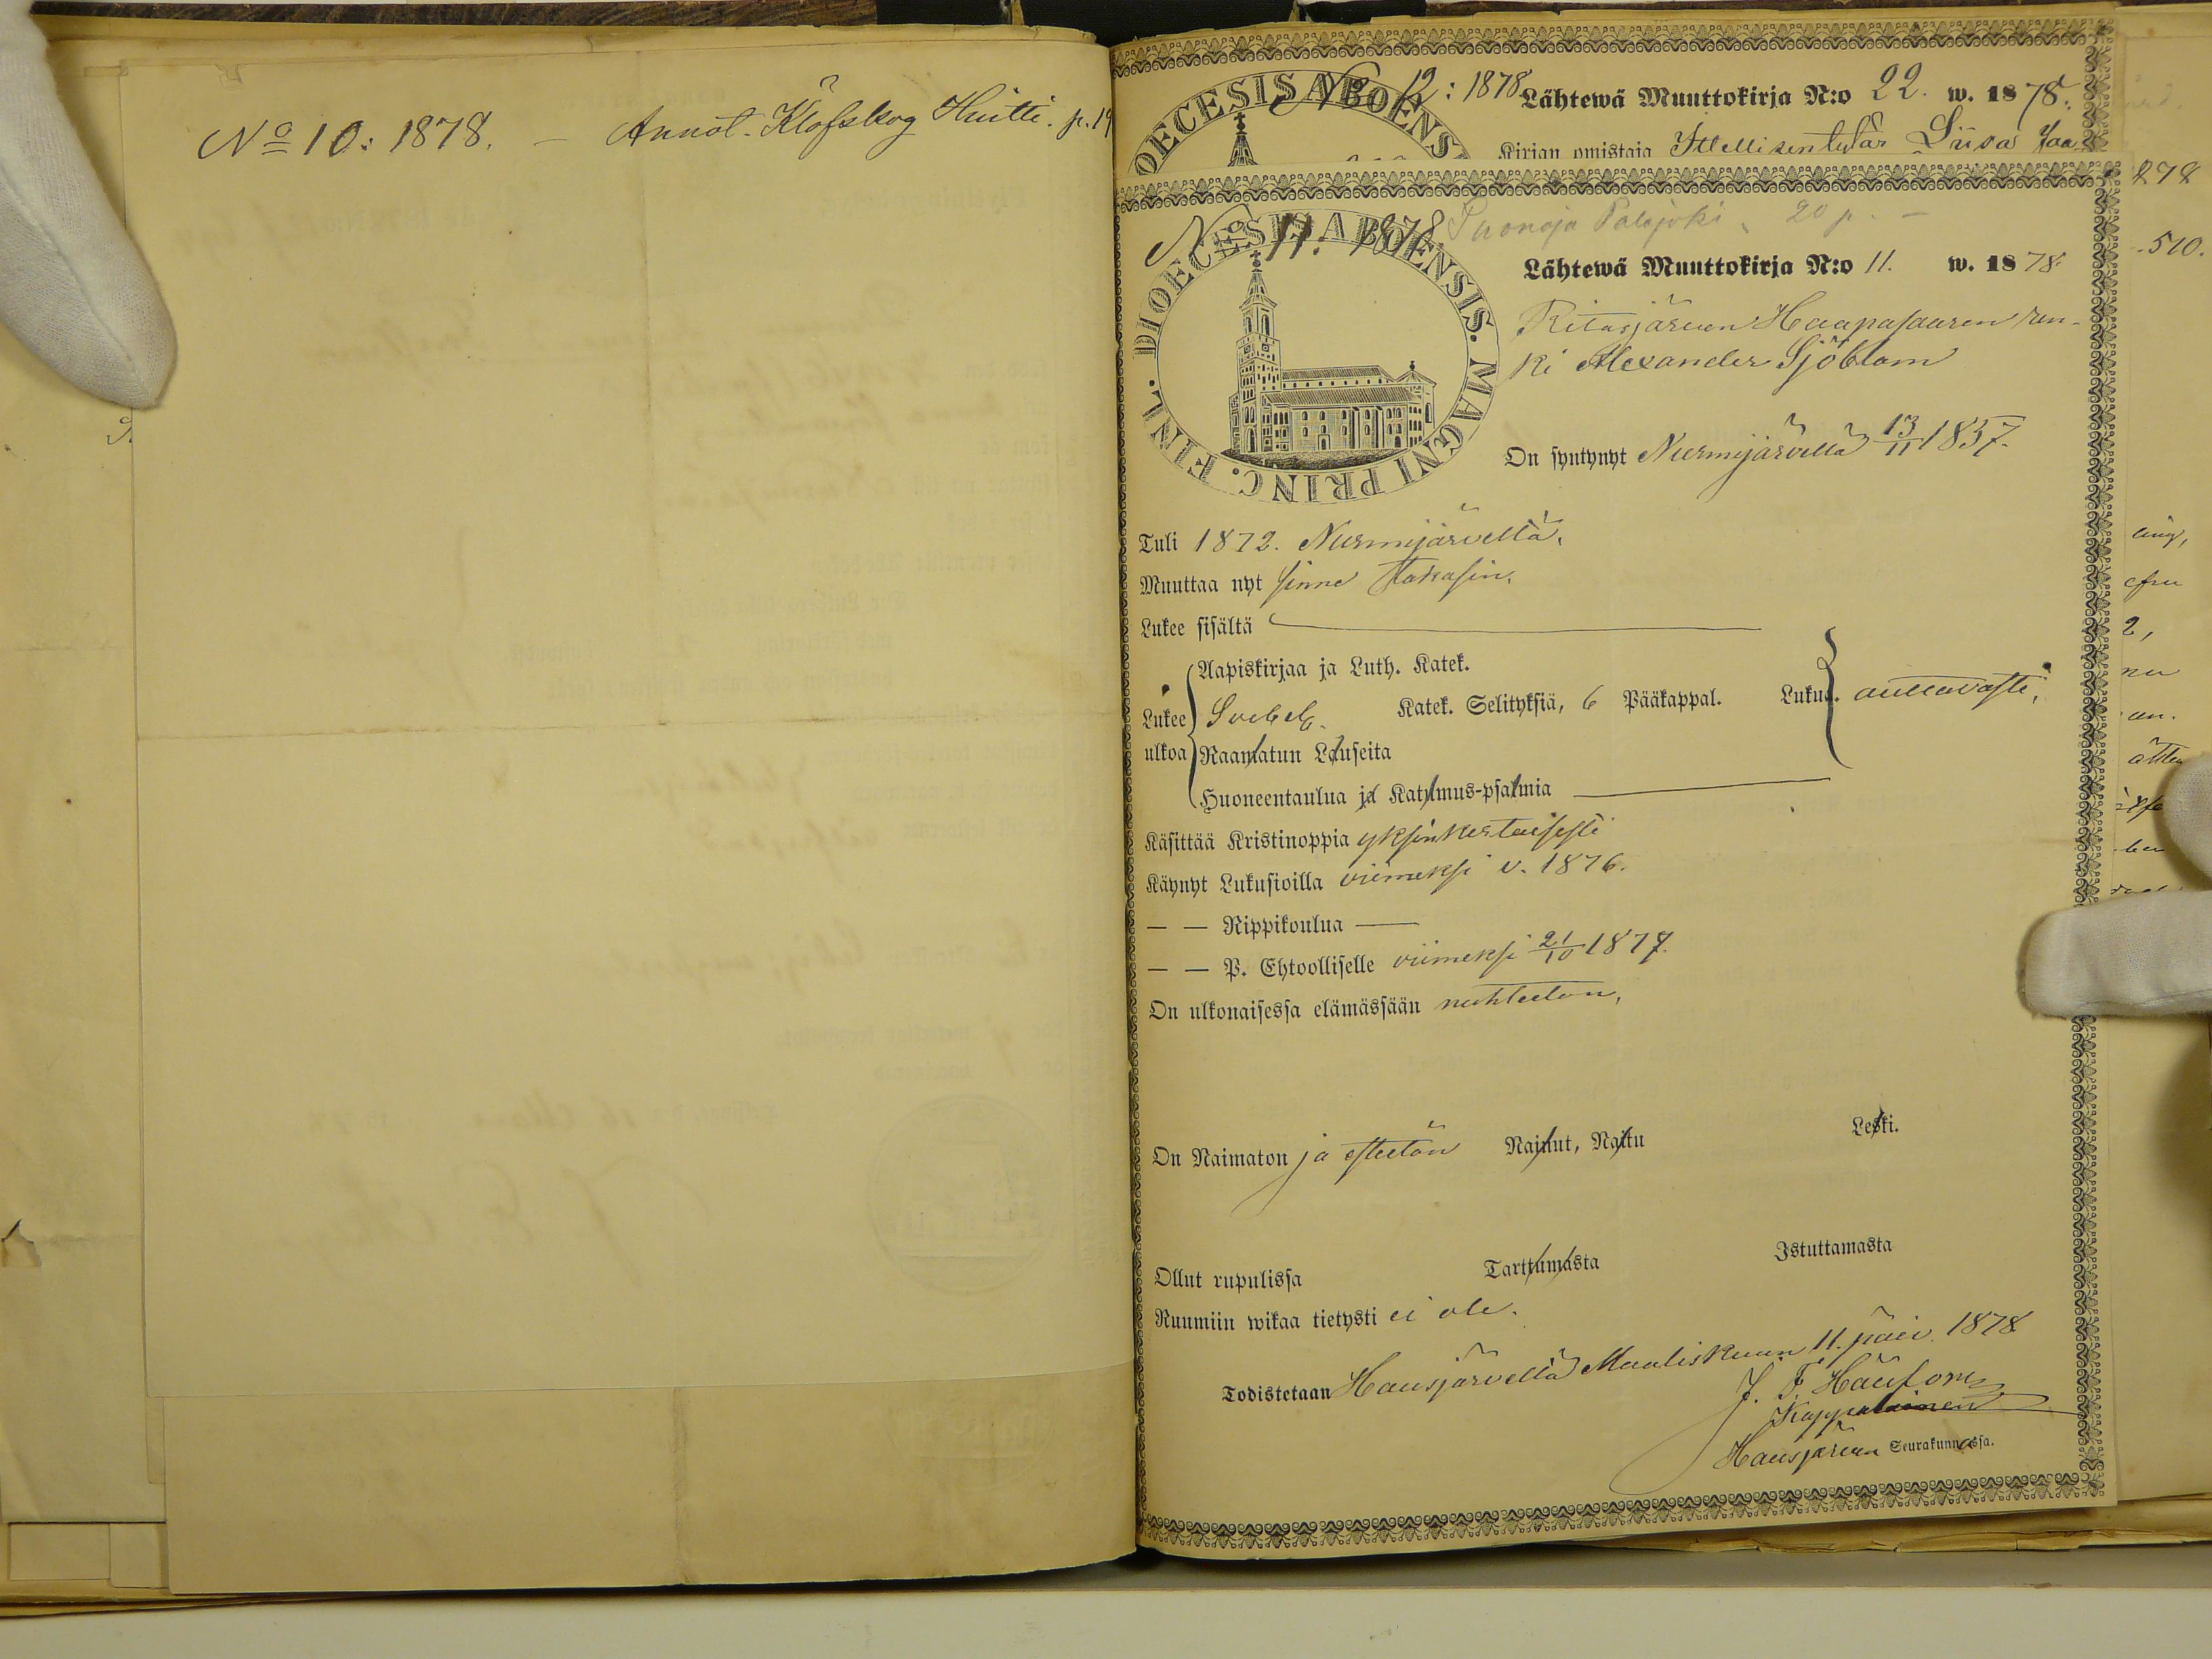 No 10: 1878. — Annot. Klöfskog Huitti. p. 19
DIOECESIS ABOENS
No 12: 1878 Lähtewä Muuttokirja N:o 22. w. 1878.
Kirjan omistaja Itsellisen tytär Liisa Jaa
No 11: 1878. Palojoki 20 p. —
FINL. DIOECESIS ABOENSIS. MAGNI PRINC.
Lähtewä Muuttokirja N:o 11. w. 1878.
Ritasjärven Haapasaaren ren-
ki Alexander Sjöblom
On syntynyt Nurmijärvellä 13/11 1837.
Tuli 1872. Nurmijärveltä.
Muuttaa nyt sinne takasin.
Lukee sisältä —
Lukee ulkoa
Aapiskirjaa ja Luth. Katek.
Svebelg. Katek. Selityksiä, 6 Pääkappal. Lukua. auttavasti.
Raamatun Lauseita
Huoneentaulua ja Katumus-psalmia —
Käsittää Kristinoppia yksinkertaisesti
Käynyt Lukusioilla viimeksi v. 1876.
— — Rippikoulua —
— — P. Ehtoolliselle viimeksi 21/10 1877.
On ulkonaisessa elämässään nuhteeton.
On Naimaton ja esteetön Nainut, Naitu Leski.
Ollut rupulissa Tarttumasta Istuttamasta
Ruumiin wikaa tietysti ei ole.
Todistetaan Hausjärvellä Maaliskuun 11. päiv. 1878
J. F.
Kappalainen
Hausjärven Seurakunnassa.
278
510.